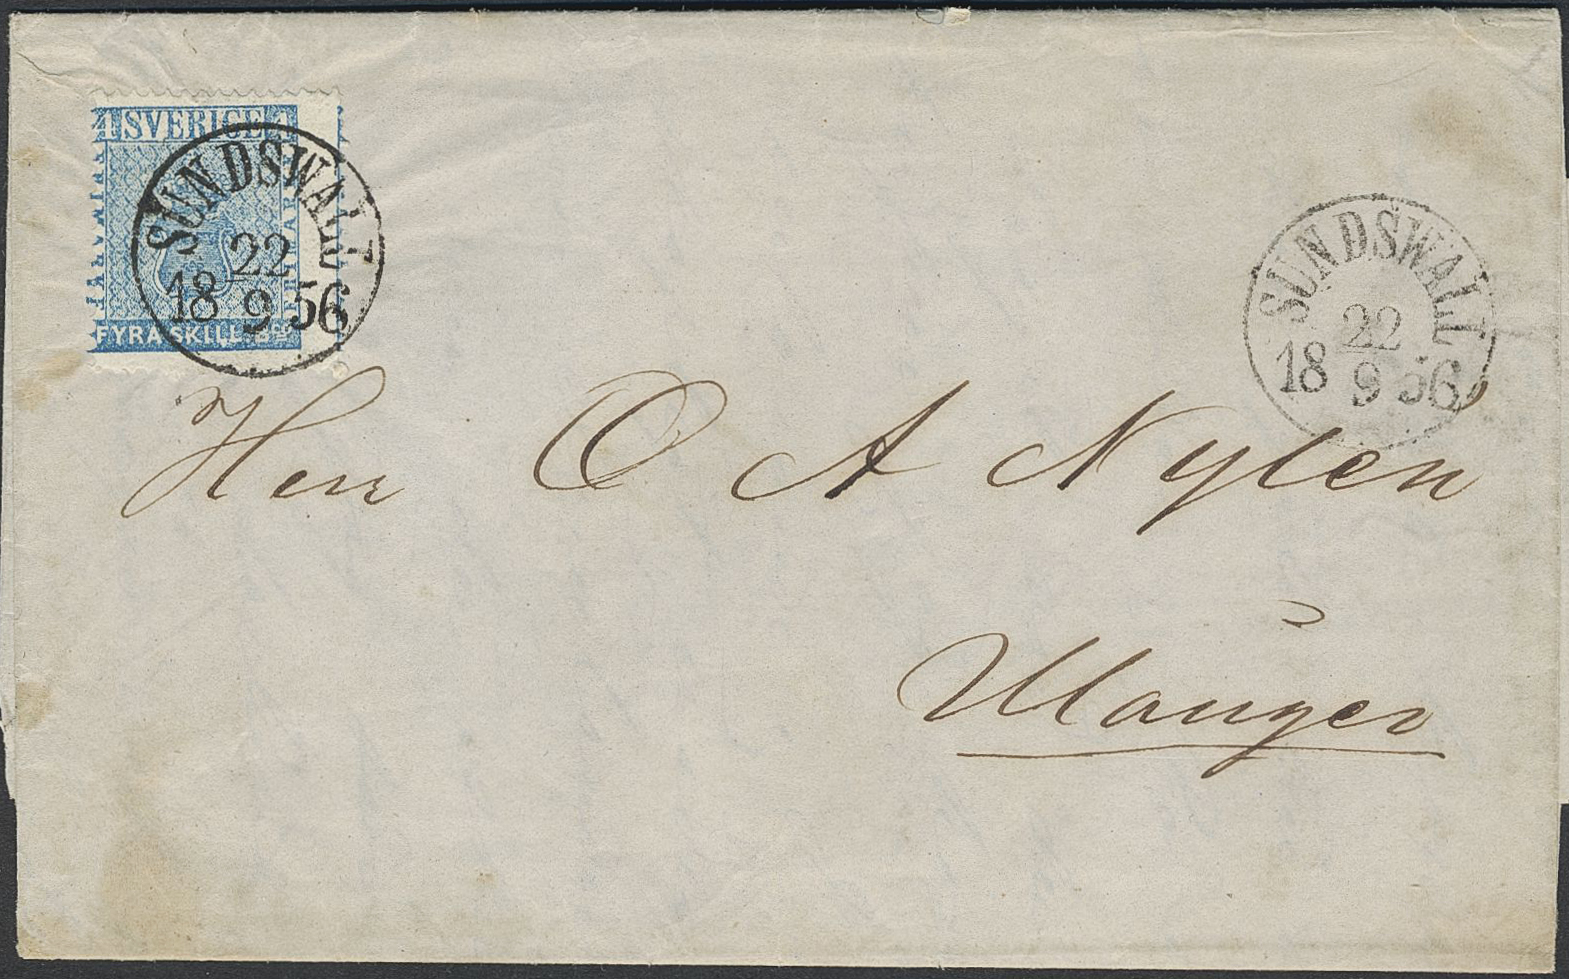 4 SVERIGE 4
FRIMÄRKE
FYRA SKILL. Bco
SUNDSWALL
22
18 9 56
SUNDSWALL
22
18 9 56
Herr O A Nylén
Ulånger